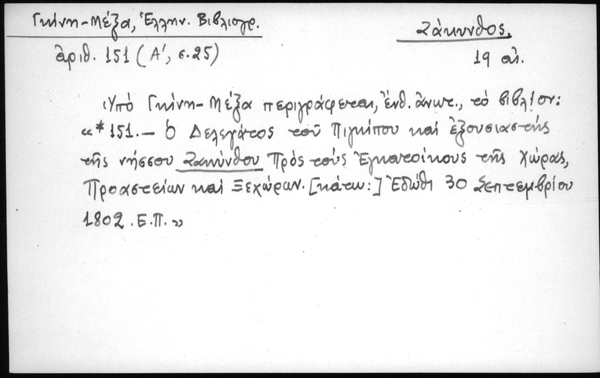 Γκίνη-Μέξα, Ἑλλην. Βιβλιογρ.
Ζάκυνθος.
ἀριθ. 151 (Α', σ.25)
19 αἰ.
Ὑπὸ Γκίνη-Μέξα περιγράφεται, ἐνθ. ἀνωτ., τὸ βιβλίον:
«*151.— Ὁ Δελεγάτος τοῦ Πιγκίπου καὶ ἐξουσιαστὴς
τῆς νήσσου Ζακύνθου Πρὸς τοὺς Ἐγκατοίκους τῆς Χώρας,
Προαστείων καὶ Ξεχώρων. [κάτω:] Ἐδώθι 30 Σεπτεμβρίου
1802. Ε.Π.»